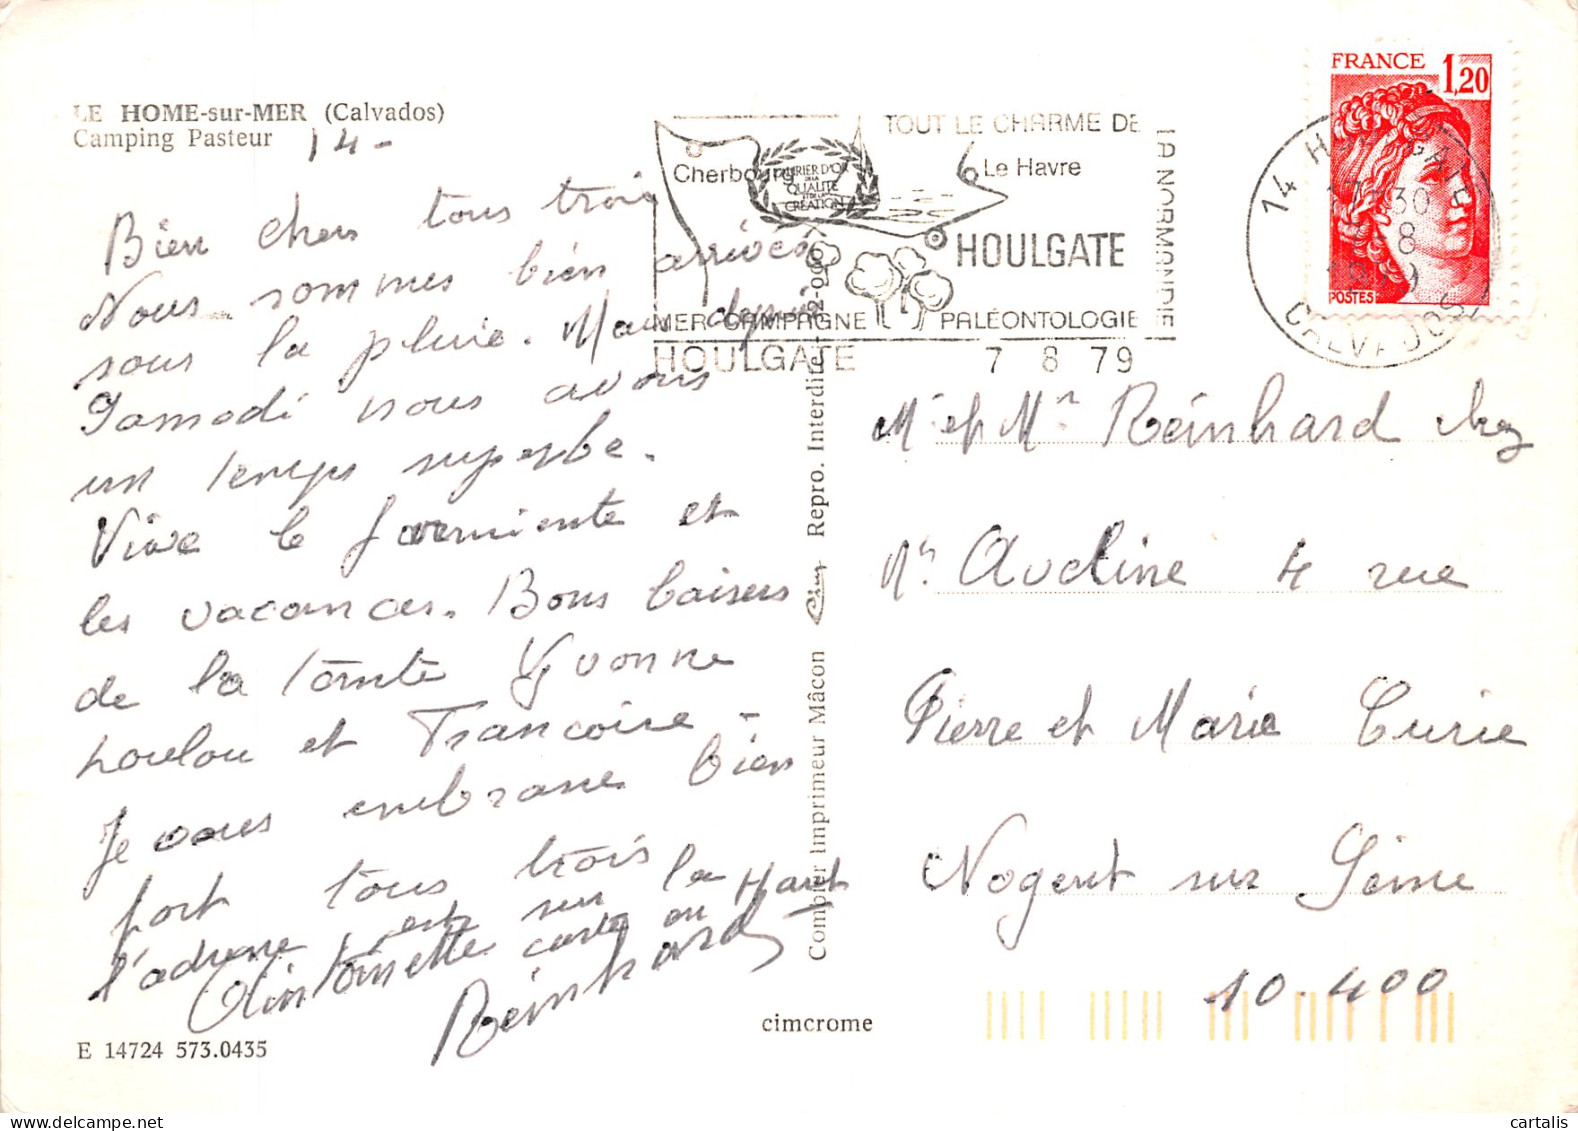 LE HOME-sur-MER (Calvados)
Camping Pasteur 14 -
Bien chers tous trois
Nous sommes bien arrivés
sous la pluie. Mais depuis
Samedi nous avons
un temps superbe.
Vive le farmiente et
les vacances. Bons baisers
de la tante Yvonne
Loulou et Francoise -
Je vous embrasse bien
fort tous trois
l'adresse est sur la
carte en Haut
Antoinette
Reinhard
E 14724 573.0435
cimcrome
Combier Imprimeur Mâcon Repro. Interdite
TOUT LE CHARME DE
LA NORMANDIE
Cherbourg
COURIER D'OR
DE LA
QUALITÉ
ET DE LA
CRÉATION
Le Havre
HOULGATE
MER CAMPAGNE PALÉONTOLOGIE
HOULGATE 7 8 79
FRANCE 1,20
POSTES
14 HOULGATE
17 H 30
8
CALVADOS
Mr et Mme Reinhard chez
Mr Aveline 4 rue
Pierre et Marie Curie
Nogent sur Seine
10.400
cartalis.com